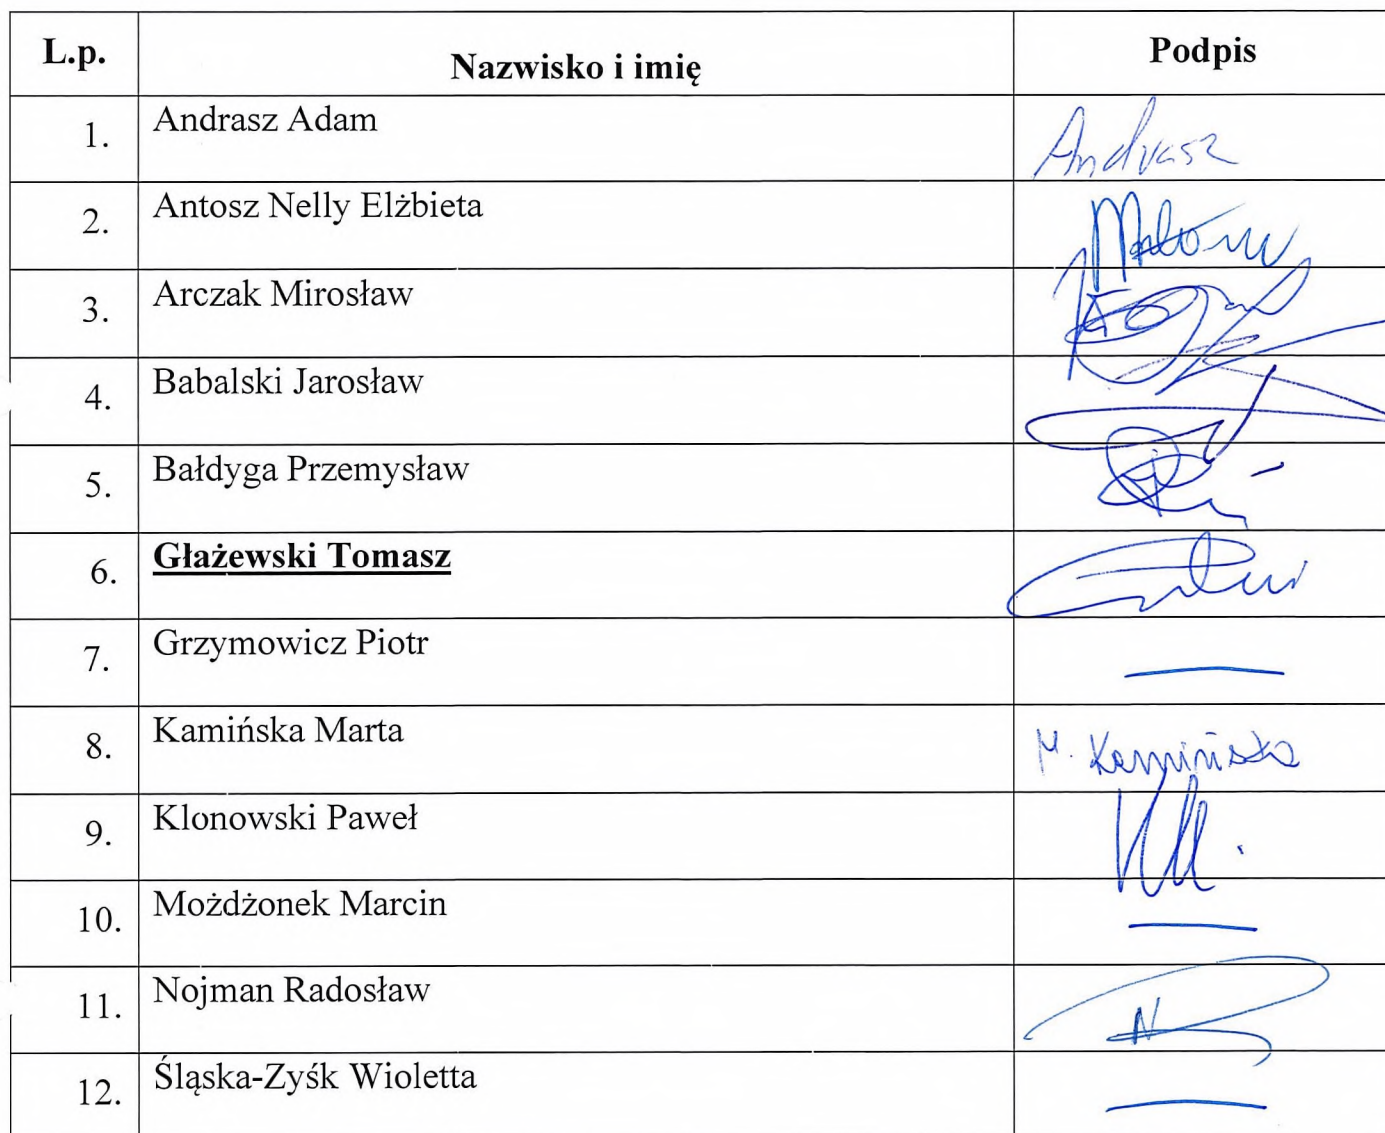 L.p. Nazwisko i imię Podpis
1. Andrasz Adam Andrasz
2. Antosz Nelly Elżbieta
3. Arczak Mirosław
4. Babalski Jarosław
5. Bałdyga Przemysław
6. Głażewski Tomasz
7. Grzymowicz Piotr —
8. Kamińska Marta M. Kamińska
9. Klonowski Paweł
10. Możdżonek Marcin —
11. Nojman Radosław
12. Śląska-Zyśk Wioletta —